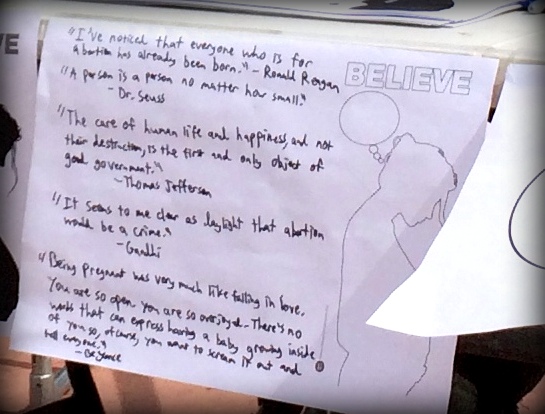 "I've noticed that everyone who is for
abortion has already been born." - Ronald Reagan
"A person is a person no matter how small."
- Dr. Seuss
"The care of human life and happiness, and not
their destruction, is the first and only object of
good government."
- Thomas Jefferson
"It seems to me clear as daylight that abortion
would be a crime."
- Gandhi
"Being pregnant was very much like falling in love.
You are so open. You are so overjoyed. There's no
words that can express having a baby growing inside
of you, so, of course, you want to scream it out and
tell everyone."
- Beyonce
BELIEVE
VE